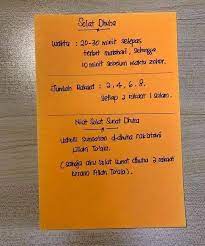 Solat Dhuha
Waktu : 20-30 minit selepas
terbit matahari, sehingga
10 minit sebelum waktu zohor.
Jumlah Rakaat : 2, 4, 6, 8.
Setiap 2 rakaat 1 salam.
Niat Solat Sunat Dhuha
Usholli sunnatan d-dhuha rak'atani
Lillahi Ta'ala.
( Sahaja aku solat sunat dhuha 2 rakaat
kerana Allah Ta'ala ).